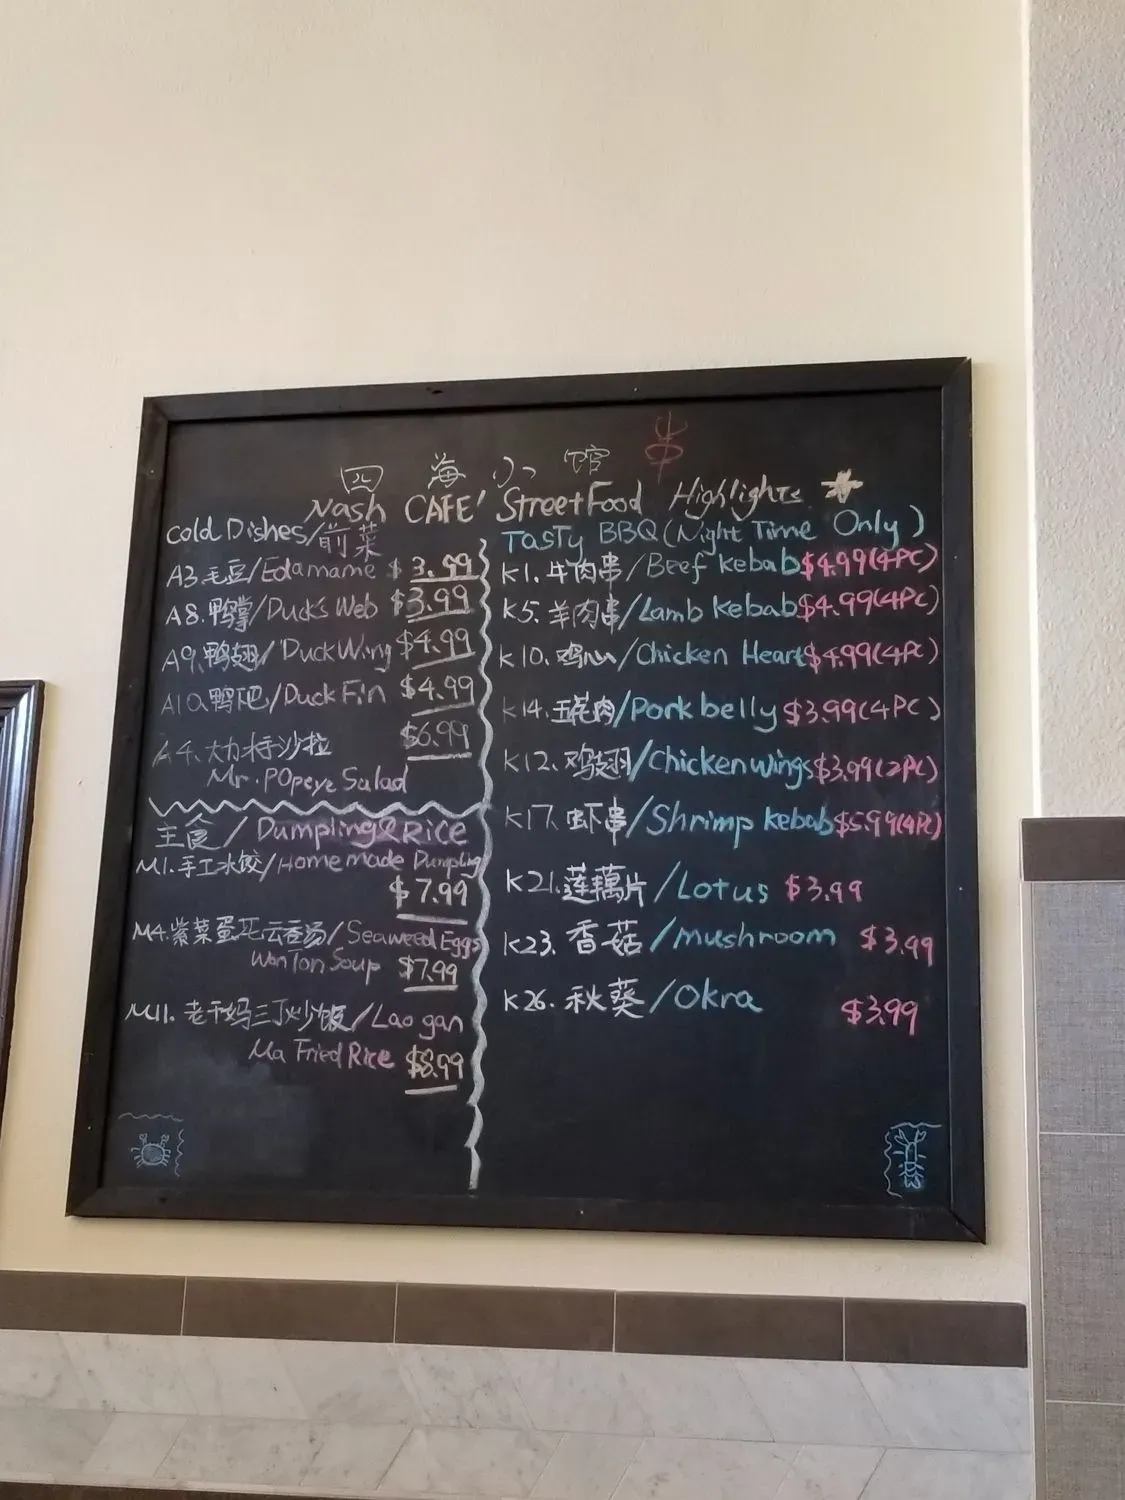 四海小馆
Nash CAFE' Street Food Highlights
Cold Dishes/前菜
A3.毛豆/Edamame $3.99
A8.鸭掌/Duck's Web $3.99
A9.鸭翅/Duck Wing $4.99
A10.鸭下巴/Duck Fin $4.99
A4.大力水手沙拉 $6.99
Mr.Popeye Salad
主食/Dumpling&Rice
M1.手工水饺/Home made Dumpling
$7.99
M4.紫菜蛋花云吞汤/Seaweed Eggs
WonTon Soup $7.99
M11.老干妈三丁炒饭/Lao gan
Ma Fried Rice $8.99
串
Tasty BBQ(Night Time Only)
K1.牛肉串/Beef kebab $4.99(4PC)
K5.羊肉串/Lamb kebab $4.99(4PC)
K10.鸡心/Chicken Heart $4.99(4PC)
K14.五花肉/Pork belly $3.99(4PC)
K12.鸡翅/Chicken wings $3.99(2PC)
K17.虾串/Shrimp kebab $5.99(4PC)
K21.莲藕片/Lotus $3.99
K23.香菇/mushroom $3.99
K26.秋葵/Okra $3.99